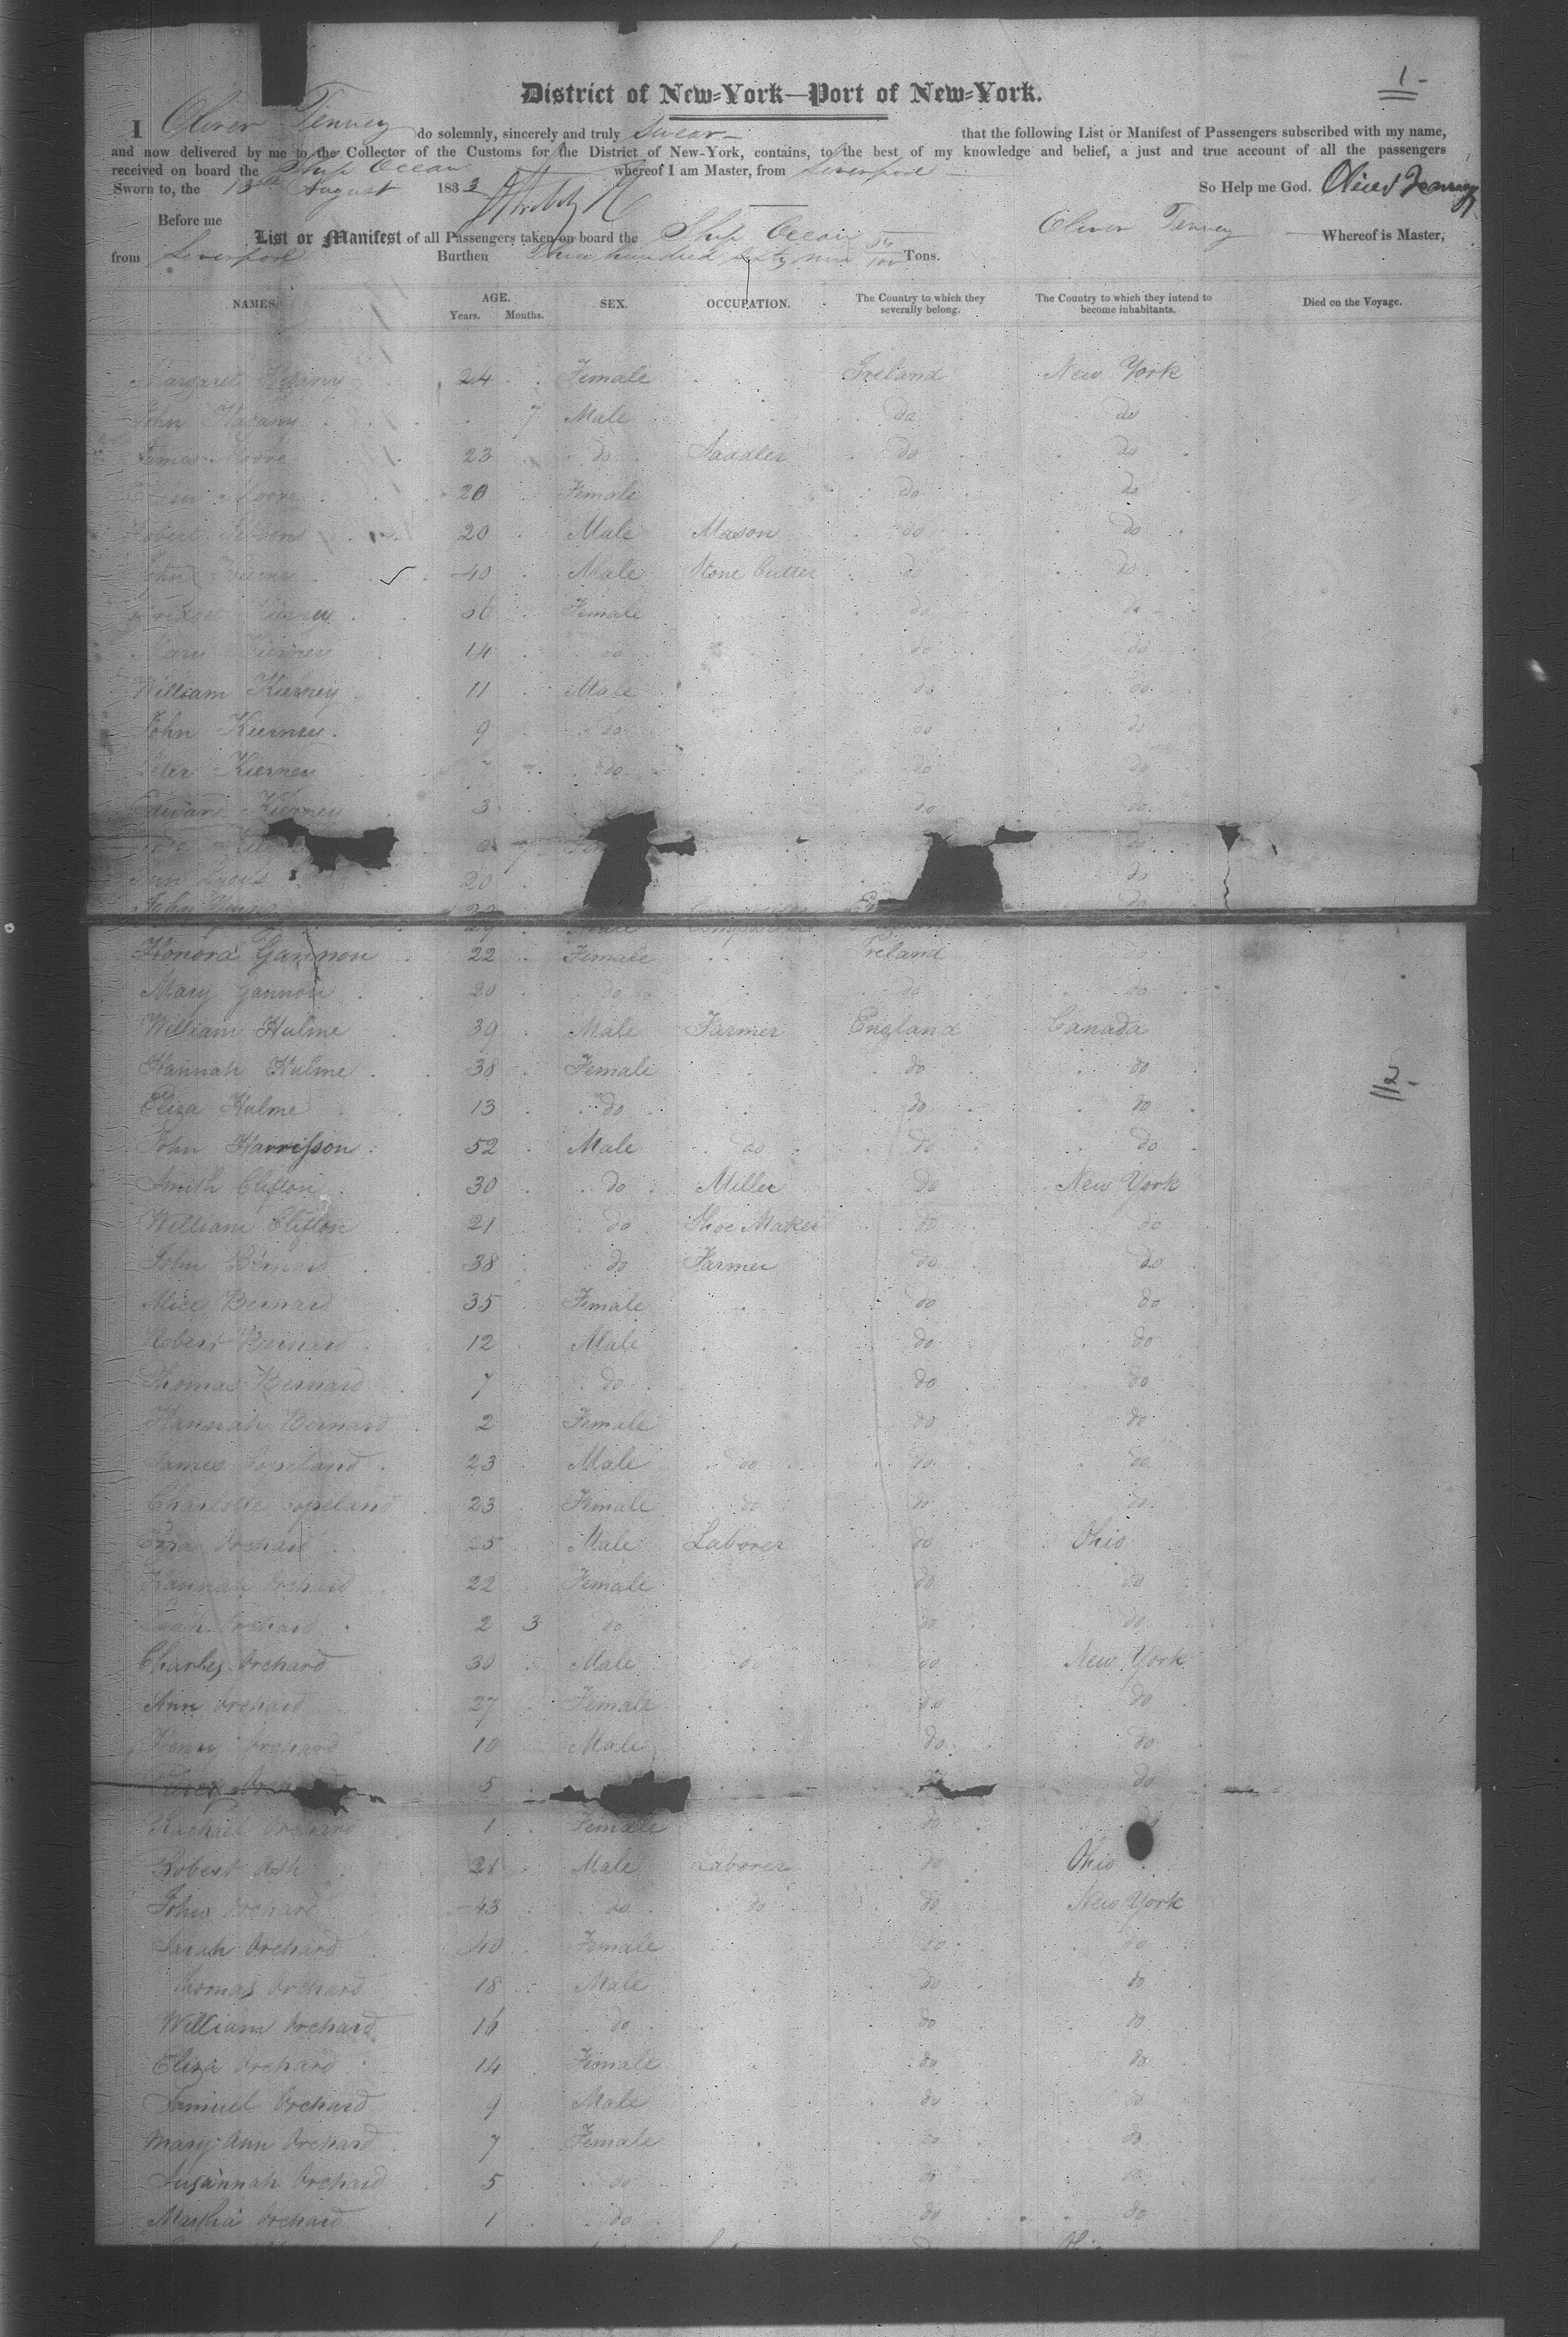 1-
District of New-York—Port of New-York.
I Oliver Tenney do solemnly, sincerely and truly Swear — that the following List or Manifest of Passengers subscribed with my name,
and now delivered by me to the Collector of the Customs for the District of New-York, contains, to the best of my knowledge and belief, a just and true account of all the passengers
received on board the Ship Ocean whereof I am Master, from Liverpool
Sworn to, the 13th August 1833 So Help me God. Oliver Tenney
Before me
List or Manifest of all Passengers taken on board the Ship Ocean Oliver Tenney Whereof is Master,
from Liverpool Burthen Three hundred sixty nine Tons.
NAMES. AGE. Years. Months. SEX. OCCUPATION. The Country to which they severally belong. The Country to which they intend to become inhabitants. Died on the Voyage.
Margaret 24 Female Ireland New York
John 7 Male do do
James Moore 23 do Saddler do do
Moore 20 Female do do
Robert 20 Male Mason do do
John 40 Male Stone Cutter do do
Kierney 36 Female do do
Mary Kierney 14 do do do
William Kierney 11 Male do do
John Kierney 9 do do do
Peter Kierney 7 do do do
Edward Kierney 3 do do
7 do
Ann 20 do
John 29 Male do
Honora Gannon 22 Female Ireland do
Mary Gannon 20 do do do
William Hulme 39 Male Farmer England Canada
Hannah Hulme 38 Female do do
Eliza Hulme 13 do do do
John Harrisson 52 Male do do do
Smith Clifton 30 do Miller do New York
William Clifton 21 do Shoe Maker do do
John Bernard 38 do Farmer do do
Alice Bernard 35 Female do do
Robert Bernard 12 Male do do
Thomas Bernard 7 do do do
Hannah Bernard 2 Female do do
James Copeland 23 Male do do do
Charlotte Copeland 23 Female do do do
Ezra Orchard 25 Male Laborer do Ohio
Hannah Orchard 22 Female do do
Orchard 2 3 do do do
Charles Orchard 30 Male do do New York
Ann Orchard 27 Female do do
Henry Orchard 10 Male do do
5 do
Rachael Orchard 1 Female do
Robert Ash 21 Male Laborer do Ohio
John Orchard 43 do do do New York
Sarah Orchard 40 Female do do
Thomas Orchard 18 Male do do
William Orchard 16 do do do
Eliza Orchard 14 Female do do
Samuel Orchard 9 Male do do
Mary Ann Orchard 7 Female do do
Susannah Orchard 5 do do do
Martha Orchard 1 do do do